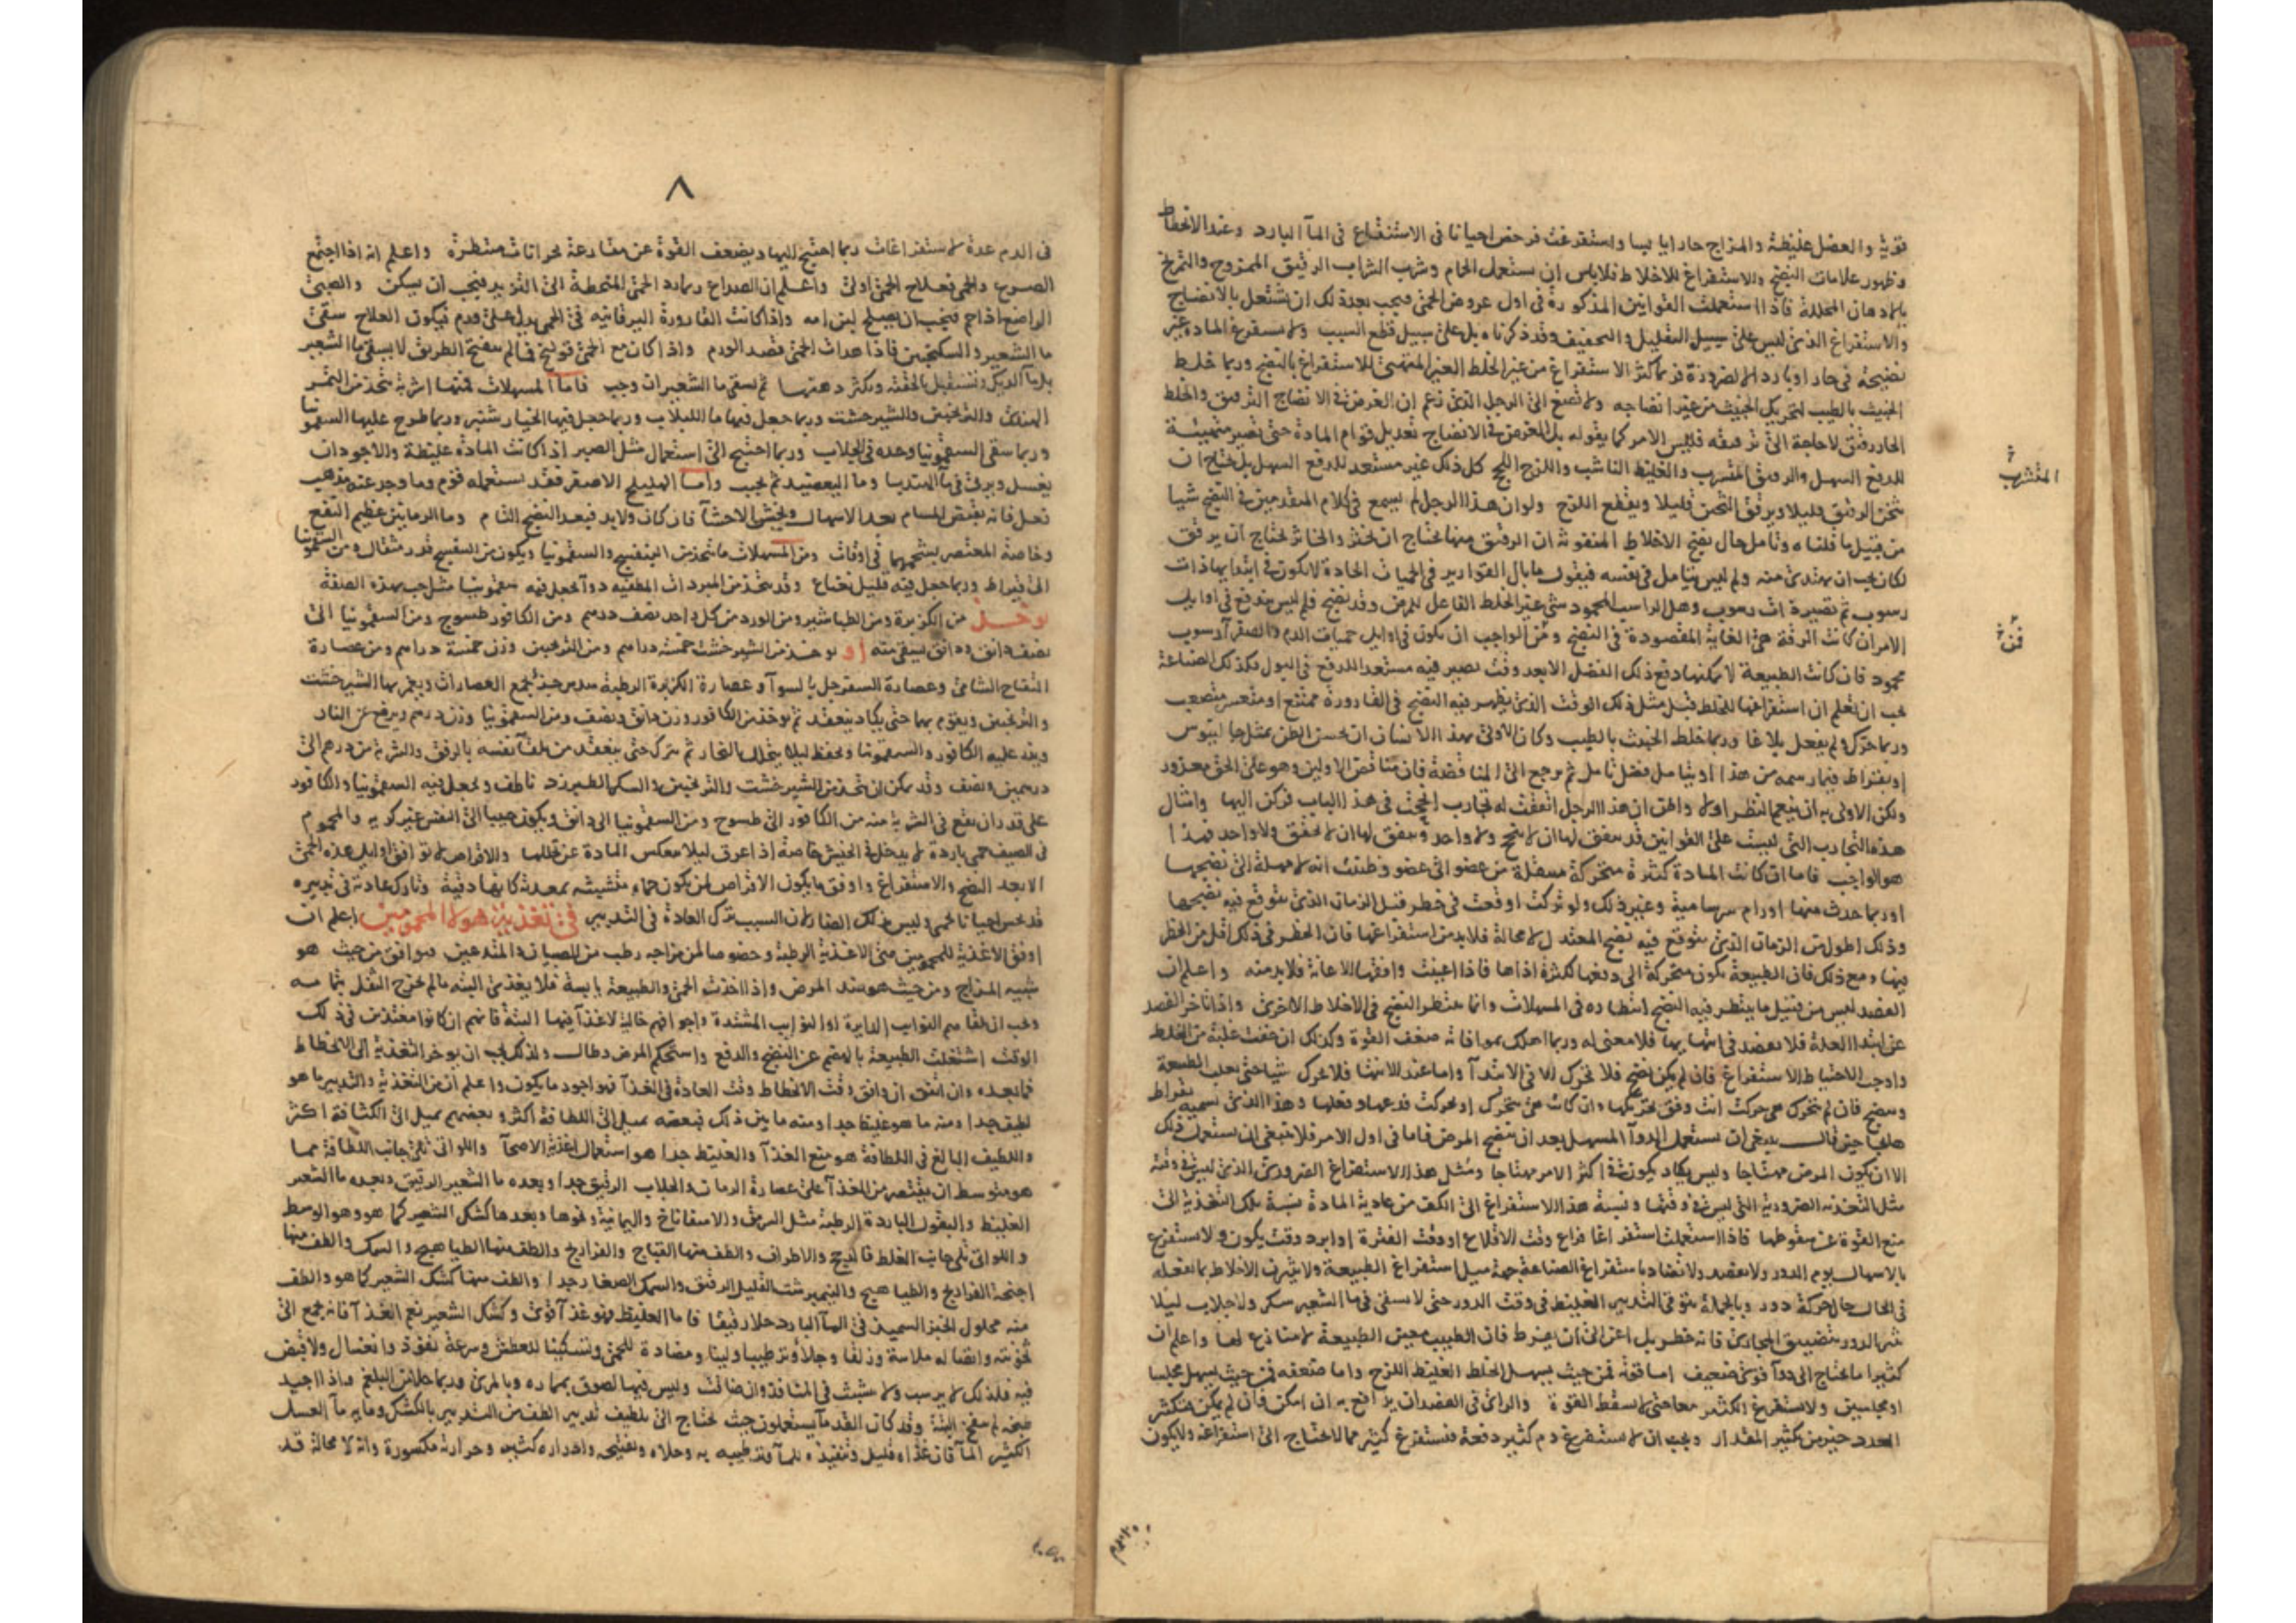 قوية والفضل غليظة والمزاج حارا يابسا واستفرغت فرخص احيانا فى الاستنقاع فى المآ البارد وعند الانحطاط
وظهور علامات النضج والاستفراغ للاخلاط فلاباس ان يستعمل الحمام وشرب الشراب الرقيق الممزوج والتمريخ
بالادهان المحللة فاذا استعملت القوانين المذكورة فى اول عروض الحمى فيجب بعد ذلك ان تشتغل بالانضاج
والاستفراغ الذى ليس على سبيل التقليل والتجفيف وقد ذكرناه بل على سبيل قطع السبب ولا تستفرغ المادة غير
نضيجة فى حار او بارد الا لضرورة فربما كثر الاستفراغ من غير الخلط الغير المتهيئ للاستفراغ بالنضج وربما خلط
الخبيث بالطيب لتحريك الخبيث من غير انضاجه ولا تصغ الى الرجل الذى زعم ان الغرض فى الانضاج الترقيق والخلط
الحار رقيق لا حاجة الى ترقيقه فليس الامر كما يقوله بل الغرض فى الانضاج تعديل قوام المادة حتى تصير متهيئة
للدفع السهل والرقيق المتشرب والغليظ الناشب واللزج اللحج كل ذلك غير مستعد للدفع السهل بل يحتاج ان
يثخن الرقيق قليلا ويرقق الثخين قليلا ويقطع اللزج ولو ان هذا الرجل لم يسمع فى كلام المتقدمين فى النضج شيا
من قبيل ما قلناه وتامل حال نضج الاخلاط المنفوثة ان الرقيق منها يحتاج ان يخثر والخاثر يحتاج ان يرقق
لكان يجب ان يهتدى منه ولم ليس يتامل فى نفسه فيقول ما بال القوارير فى الحميات الحادة لا يكون فى ابتدايها ذات
رسوب ثم تصير ذات رسوب وهل الراسب المحمود شئ غير الخلط الفاعل للمرض وقد نضج فلم ليس يندفع فى اوايل
الامر ان كانت الرقة هى الغاية المقصودة فى النضج ومن الواجب ان يكون فى اوايل حميات الدم والصفرآ رسوب
محمود فان كانت الطبيعة لا يمكنها دفع ذلك الفضل الا بعد وقت تصير فيه مستعد للدفع فى البول فكذلك الصناعة
يجب ان تعلم ان استفراغها للخلط قبل مثل ذلك الوقت الذى يظهر فيه النضج فى القارورة ممتنع او متعسر متصعب
وربما حرك ولم يفعل بلاغا وربما خلط الخبيث بالطيب وكان الاولى بهذا الانسان ان يحسن الظن بمثل جالينوس
او بقراط فيما رسمه من هذا او يتامل فضل تامل ثم يرجع الى المناقضة فان مناقض الاولين وهو على الحق معذور
ولكن الاولى به ان ينعم النظر اولا والحق ان هذا الرجل اتفقت له تجارب انجحت فى هذا الباب فركن اليها وامثال
هذه التجارب التى ليست على القوانين قد يتفق لها ان لا ينجح ولا واحد ويتفق لها ان لا يخفق ولا واحد فهذا
هو الواجب فاما ان كانت المادة كثيرة متحركة منتقلة من عضو الى عضو وظننت انه لا مهلة الى نضجها
او ربما حدث منها اورام سرسامية وغير ذلك ولو تركت اوقعت فى خطر قبل الزمان الذى يتوقع فيه نضجها
وذلك اطول من الزمان الذى يتوقع فيه نضج المعتدل لا محالة فلا بد من استفراغها فان الخطر فى ذلك اقل من الخطر
فيها ومع ذلك فان الطبيعة يكون متحركة الى دفعها لكثرة اذاها فاذا اعينت وافقها الاعانة فلا بد منه واعلم ان
الفصد ليس من قبيل ما ينتظر فيه النضج انتظاره فى المسهلات وانما ينتظر النضج فى الاخلاط الاخرى واذا تاخر الفصد
عن ابتدا العلة فلا يفصد فى انتهايها فلا معنى له وربما اهلك بموافاته ضعف القوة وكذلك ان خفت غلبة من الخلط
واوجب الاحتياط الاستفراغ فان لم يكن نضج فلا تحرك الا فى الابتدآ واما عند الانتها فلا تحرك شيا حتى تغلب الطبيعة
وينضج فان لم يتحرك هى حركت انت وفق تحريكها وان كانت هى تتحرك او تحركت فدعها وفعلها وهذا الذى تسميه بقراط
هايجا حين قال ينبغى ان يستعمل الدوآ المسهل بعد ان ينضج المرض فاما فى اول الامر فلا ينبغى ان يستعمل ذلك
الا ان يكون المرض مهتاجا وليس يكاد يكون فى اكثر الامر مهتاجا ومثل هذا الاستفراغ الضرورى الذى ليس فى وقته
مثل التغذية الضرورية التى ليس فى وقتها ونسبة هذا الاستفراغ الى الكف من عادية المادة نسبة تلك التغذية الى
منع القوة عن سقوطها فاذا استعملت استفراغا فراع وقت الاقلاع او وقت الفترة او ابرد وقت يكون ولا تستفرغ
بالاسهال يوم الدور ولا تفصد ولا تضاد باستفراغ الصناعة جهة ميل استفراغ الطبيعة ولا يثرن الاخلاط بما تفعله
فى الحال حال حركة دور وبالجملة توق فى التدبير الغليظ فى وقت الدور حتى لا يسقى فى مآ الشعير سكر ولا جلاب ليلا
شر الدور بتضييق المجارى فانه خطر بل اعن الى ان يفرط فان الطبيب معين الطبيعة لا منازع لها واعلم ان
كثيرا ما يحتاج الى دوآ قوى ضعيف اما قوته فمن حيث يسهل الخلط الغليظ اللزج واما ضعفه فمن حيث يسهل مجلسا
او مجلسين ولا يستفرغ الكثير معا حتى لا يسقط القوة والراى فى الفصد ان يدافع به ان امكن فان لم يمكن فتكثر
العدد خير من تكثير المقدار ويجب ان لا يستفرغ دم كثير دفعة فتستفرغ كثير مما لا يحتاج الى استفراغه ولا يكون
المتشرب
٨
فى الدم عدة لاستفراغات ربما احتيج اليها ويضعف القوة عن مقارعة بحرانات منتظرة واعلم انه اذا اجتمع
الصرع والحمى فعلاج الحمى اولى واعلم ان الصداع ربما رد الحمى المنحطة الى التزيد فيجب ان يسكن والصبى
الراضع اذا حم فيجب ان يصلح لبن امه واذا كانت القارورة اليرقانيه فى الحمى يدل على ورم فيكون العلاج سقى
ما الشعير والسكنجبين فاذا هدات الحمى قصد الورم واذا كان مع الحمى قولنج فما لم ينفتح الطريق لا يسقى ما الشعير
بل مآ الديك وتستقبل بالحقنه وتكثر دهنها ثم يسقى ما الشعير ان وجب فاما المسهلات فمنها اشربة تتخذ من التمر
الهندى والترنجبين والشيرخشت وربما جعل فيها ما اللبلاب وربما جعل فيها الخيار شنبر وربما طرح عليها السقمونيا
وربما سقى السقمونيا وحده فى الجلاب وربما احتيج الى استعمال مثل الصبر اذا كانت المادة غليظة والاجود ان
يغسل ويربى فى مآ الهندبا وما البعضيد ثم يجبب واما الهليلج الاصفر فقد يستعمله قوم وما وجد عنه مذهب
تعل فانه يقبض المسام بعد الاسهال ويخشن الاحشآ فان كان ولا بد فبعد النضج التام وما الرمانين عظيم النفع
وخاصة المعتصر بشحمهما فى اوقات ومن المسهلات ما يتخذ من البنفسج والسقمونيا ويكون من البنفسج قدر مثقال ومن السقمونيا
الى قيراط وربما جعل فيه قليل نعناع وقد يتخذ من المبردات المطفيه دوآ يجعل فيه سقمونيا مثل حب بهذه الصفة
يوخذ من الكزبرة ومن الطباشير ومن الورد من كل واحد نصف درهم ومن الكافور طسوج ومن السقمونيا الى
نصف دانق ودانق يسقى منه او يوخذ من الشيرخشت خمسة دراهم ومن الترنجبين وزن خمسة دراهم ومن عصارة
التفاح الشامى وعصارة السفرجل بالسوآ وعصارة الكزبرة الرطبة سدس جز تجمع العصارات ويغمر بها الشيرخشت
والترنجبين ويقوم بهما حتى يكاد ينعقد ثم يوخذ من الكافور وزن دانق ونصف ومن السقمونيا وزن درهم ويرفع عن النار
ويذر عليه الكافور والسقمونيا ويحفظ ليلا يتحلل بالبخار ثم يترك حتى ينعقد من تلقآ نفسه بالرفق والشربة من درهم الى
درهمين ونصف وقد يمكن ان يتخذ من الشيرخشت والترنجبين والسكر الطبرزد ناطف ويجعل فيه السقمونيا والكافور
على قدر ان يقع فى الشربة منه من الكافور الى طسوج ومن السقمونيا الى دانق ويكون حبيبا الى النفس غير كريه والمحموم
فى الصيف حمى باردة لا يدخل فى الخيش خاصة اذا عرق ليلا تنعكس المادة عن تحللها والاقراص لا توافق اوايل هذه الحمى
الا بعد النضج والاستفراغ واوفق ما يكون الاقراص لمن يكون حماه متشبثه بمعدته كانها دقية وتارك عادته فى تدبيره
قد يحس احيانا بحمى وليس ذلك الضار لان السبب ترك العادة فى التدبير فى تغذية هولا المحمومين اعلم ان
اوفق الاغذية للمحمومين هى الاغذية الرطبة وخصوصا لمن مزاجه رطب من الصبيان والمتدعين فيوافق من حيث هو
شبيه المزاج ومن حيث هو ضد المرض واذا اخذت الحمى والطبيعة يابسة فلا يغذى البتة ما لم يخرج الثفل بتمامه
ويجب ان يلقاهم النوايب الدايرة او النوايب المشتدة واجوافهم خالية لا غذآ فيها البتة فانهم ان كانوا مغتذين فى ذلك
الوقت اشتغلت الطبيعة بالهضم عن النضج والدفع واستحكم المرض وطال ولذلك يجب ان يوخر التغذية الى الانحطاط
فما بعده وان اتفق ان وافق وقت الانحطاط وقت العادة فى الغذآ فهو اجود ما يكون واعلم ان من التغذية والتدبير ما هو
لطيف جدا ومنه ما هو غليظ جدا ومنه ما بين ذلك فبعضه يميل الى اللطافة اكثر وبعضهم يميل الى الكثافة اكثر
واللطيف البالغ فى اللطافة هو منع الغذآ والغليظ جدا هو استعمال اغذية الاصحآ واللواتى تلى جانب اللطافة مما
هو متوسط ان يقتصر من الغذآ على عصارة الرمان والجلاب الرقيق جدا وبعده ما الشعير الرقيق وبعده ما الشعير
الغليظ والبقول الباردة الرطبة مثل السرمق والاسفاناخ واليمانية ونحوها وبعدها كشك الشعير كما هو وهو الوسط
واللواتى تلى جانب الغلظ فالدجاج والاطراف والطف منها القباج والفراريج والطف منها الطياهيج والسمك والطف منها
اجنحة الفراريج والطياهيج والنيمبرشت القليل الرقيق والسمك الصغار جدا والطف منها كشك الشعير كما هو والطف
منه محلول الخبز السميد فى المآ البارد حلا رقيقا فاما الغليظ فهو غذآ قوى وكشك الشعير نعم الغذآ فانه يجمع الى
ثخونته واتصاله ملاسة وزلقا وجلآ وترطيبا ولينا ومضادة للحمى وتسكينا للعطش وسرعة نفوذ وانغسال ولا قبض
فيه فلذلك لا يرسب ولا يتشبث فى المنافذ وان ضاقت وليس فيها لصوق بممره وبالمرى وربما جلا من البلغم واذا اجيد
طبخه لم ينفخ البتة وقد كان القدمآ يستعملون حيث يحتاج الى تلطيف تدبير الطف من التدبير بالكشك ومايه مآ العسل
الكثير المآ فان غذاه قليل وتنفيذه للمآ وترطيبه به وجلاه وتفتيحه وادراره كثير وحرارته مكسورة وانه لا محالة قد